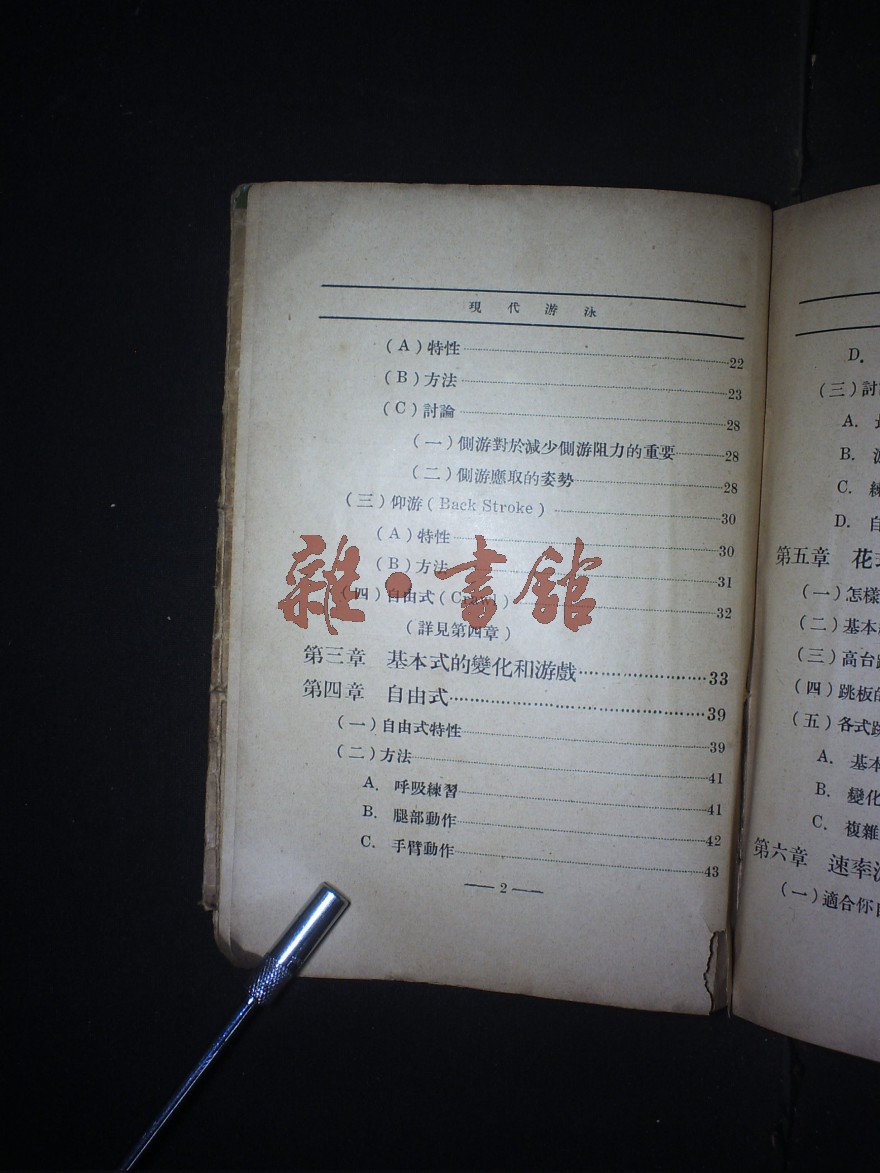 現代游泳
(A)特性 22
(B)方法 23
(C)討論 28
(一)側游對於減少側游阻力的重要 28
(二)側游應取的姿勢 28
(三)仰游(Back Stroke) 30
(A)特性 30
(B)方法 31
(四)自由式(Crawl) 32
(詳見第四章)
第三章 基本式的變化和游戲 33
第四章 自由式 39
(一)自由式特性 39
(二)方法 41
A. 呼吸練習 41
B. 腿部動作 42
C. 手臂動作 43
2
雜·書館
D.
(三)討
A.
B.
C. 練
D. 自
第五章 花
(一)怎樣
(二)基本
(三)高台
(四)跳板
(五)各式
A. 基本
B. 變化
C. 複雜
第六章 速率
(一)適合你